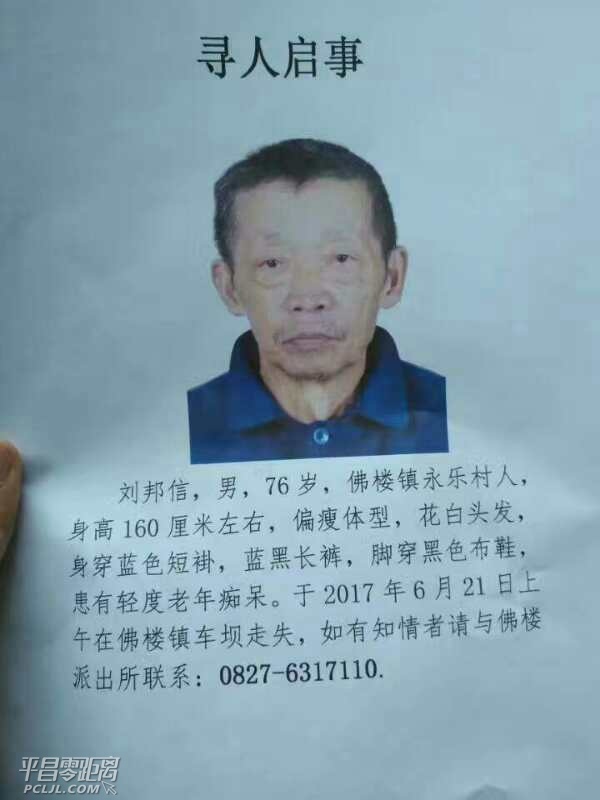 寻人启事
刘邦信，男，76岁，佛楼镇永乐村人，
身高160厘米左右，偏瘦体型，花白头发，
身穿蓝色短褂，蓝黑长裤，脚穿黑色布鞋，
患有轻度老年痴呆。于2017年6月21日上
午在佛楼镇车坝走失，如有知情者请与佛楼
派出所联系：0827-6317110.
平昌零距离
PCLJL.COM